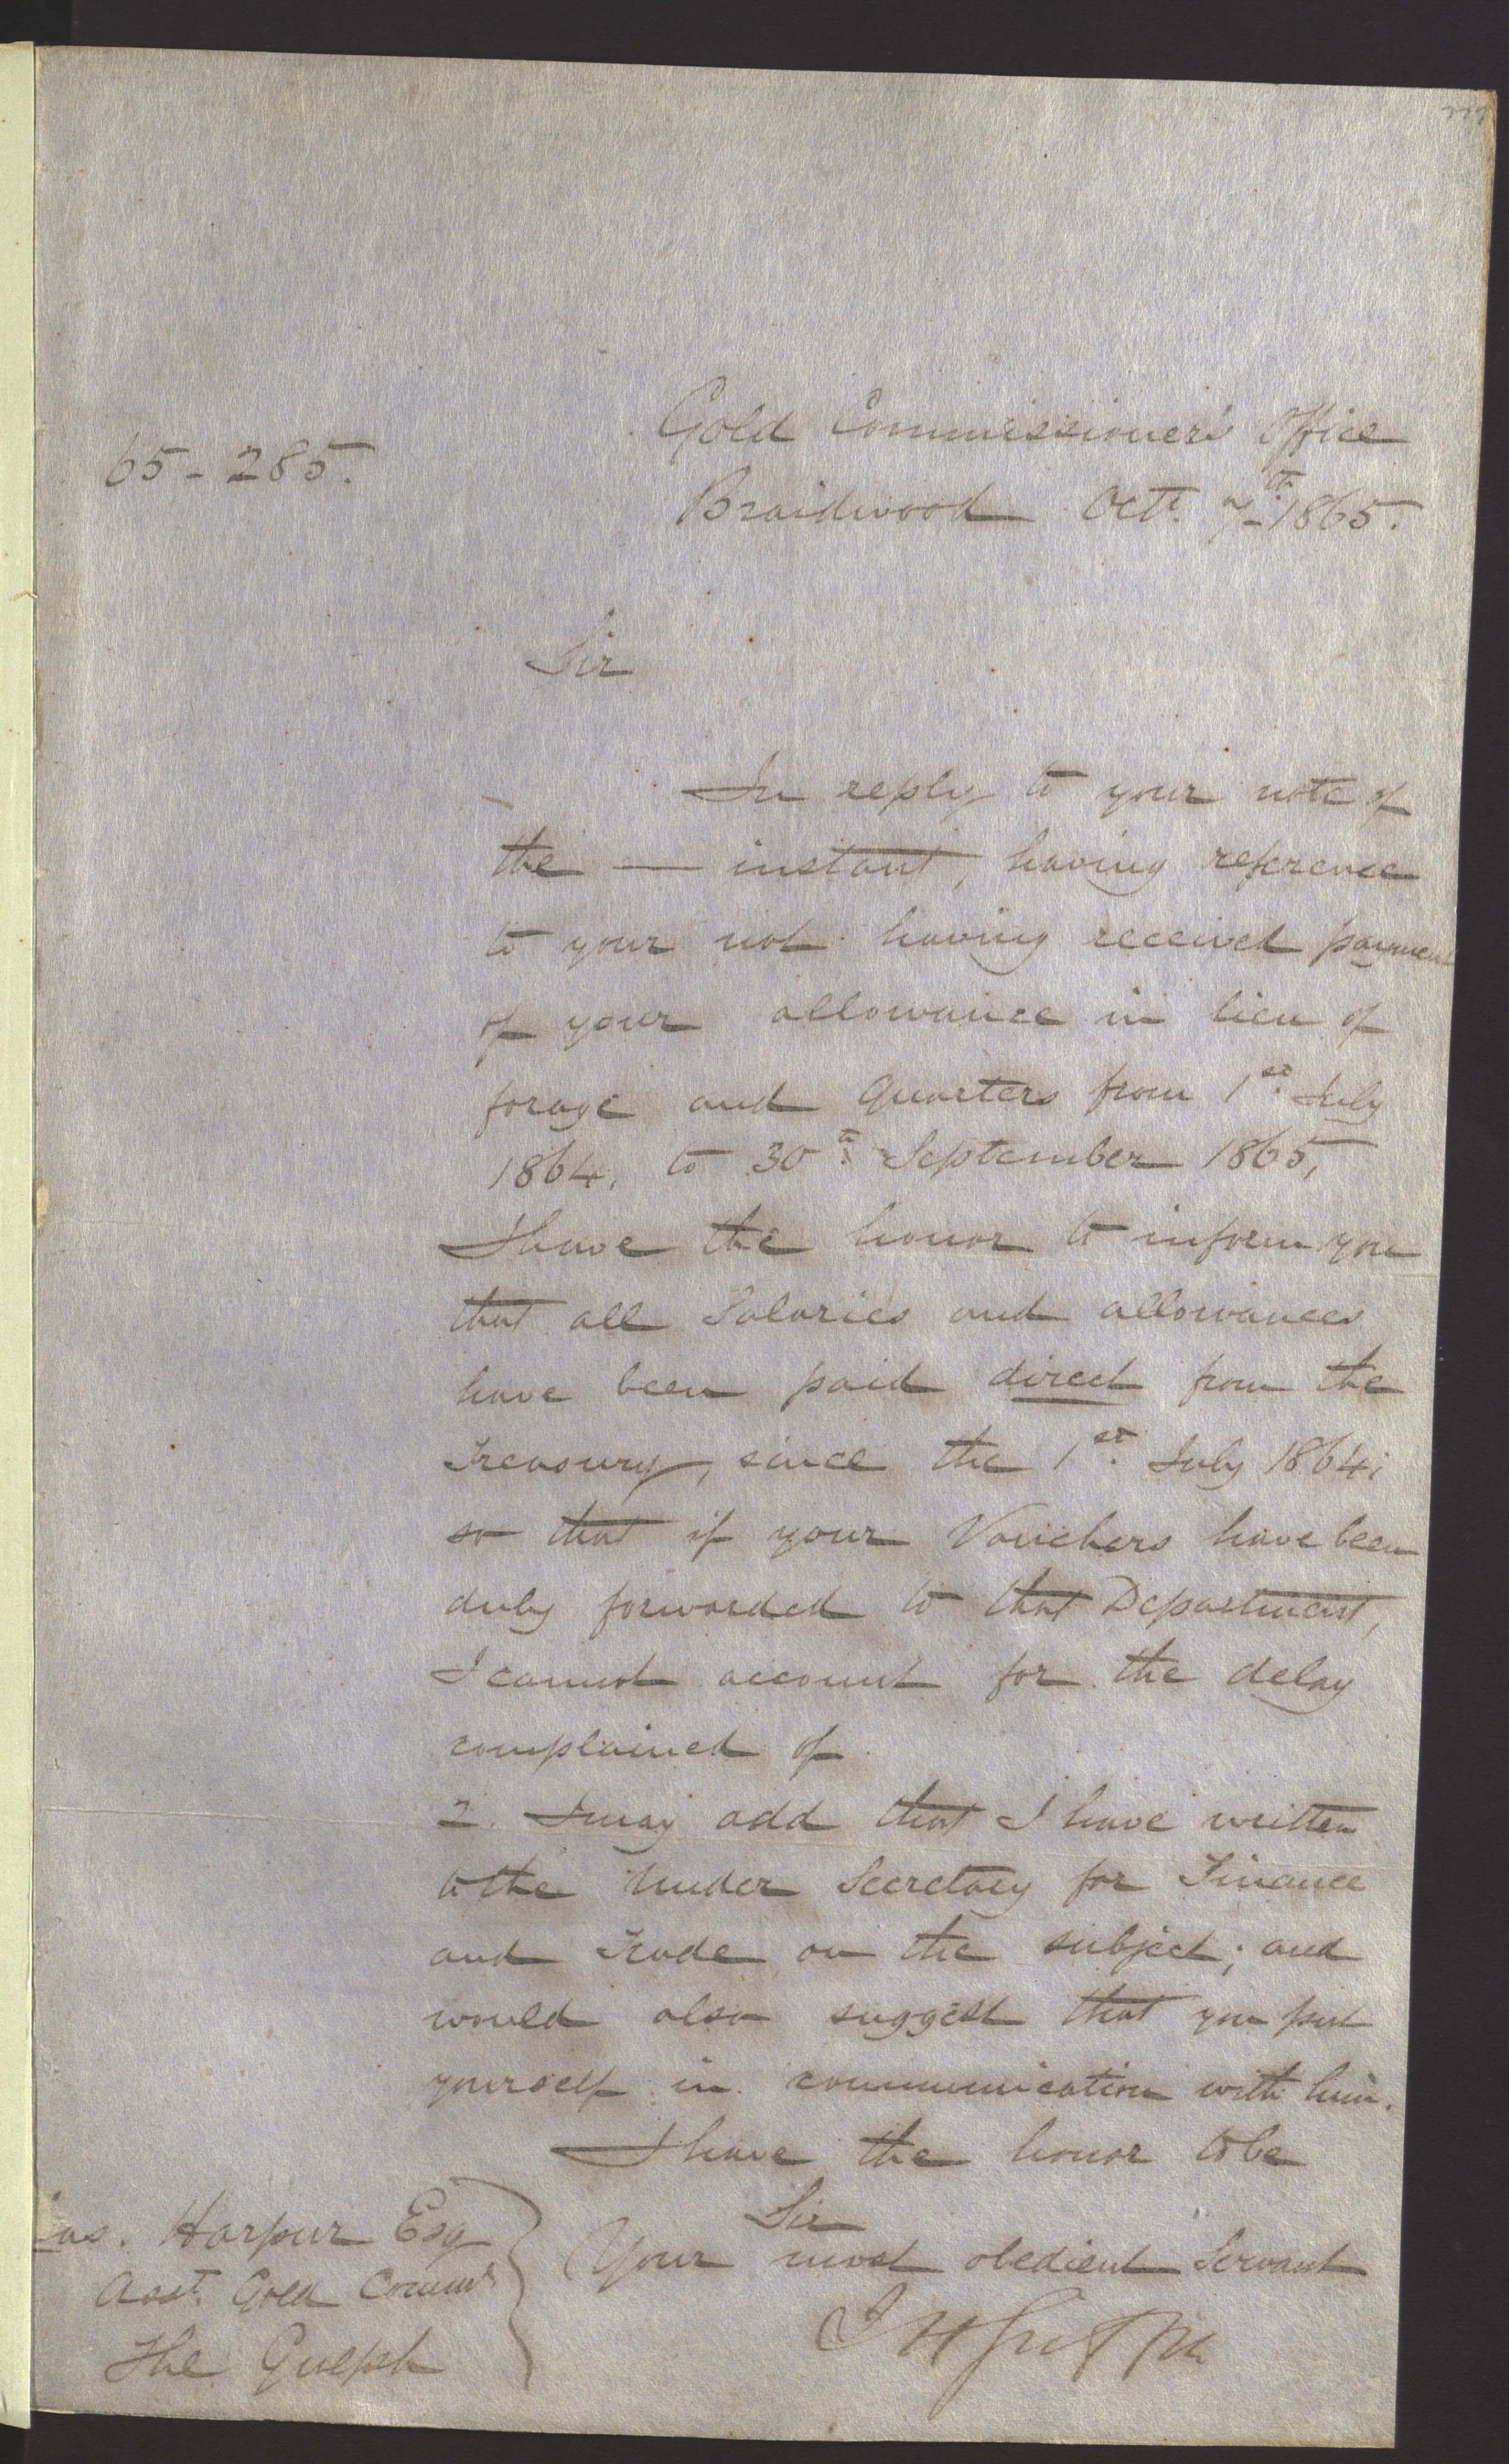 777
65-285.
Gold Commissioner's Office
Braidwood Octr. 7th 1865.
Sir
In reply to your note of
the — instant, having reference
to your not having received payment
of your allowance in lieu of
forage and Quarters from 1st July
1864, to 30th September 1865,
I have the honor to inform you
that all Salaries and allowances
have been paid direct from the
Treasury, since the 1st July 1864;
so that if your Vouchers have been
duly forwarded to that Department,
I cannot account for the delay
complained of.
2. I may add that I have written
to the Under Secretary for Finance
and Trade on the subject; and
would also suggest that you put
yourself in communication with him.
I have the honor to be
Sir
Your most obedient Servant
Harpur Esq
Asst. Gold Commr
The Gulph